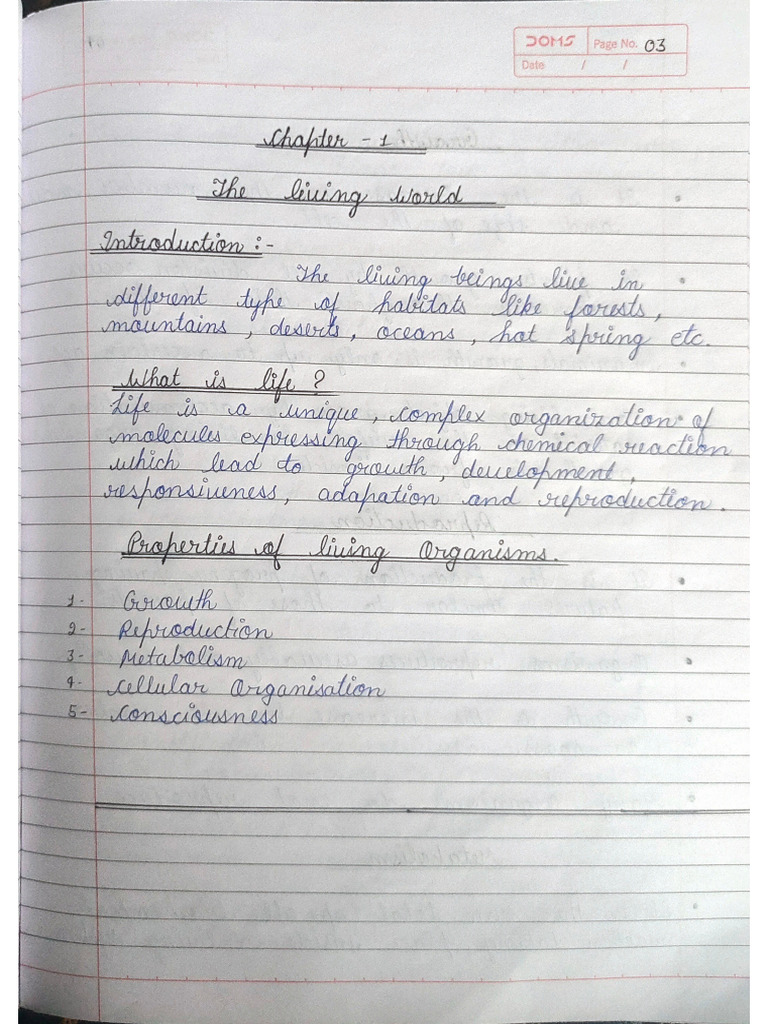 DOMS Page No. 03
Date / /
Chapter - 1
The living World
Introduction :-
The living beings live in
different type of habitats like forests,
mountains, deserts, oceans, hot spring etc.
What is life ?
Life is a unique, complex organization of
molecules expressing through chemical reaction
which lead to growth, development,
responsiveness, adapation and reproduction.
Properties of living Organisms.
1- Growth
2- Reproduction
3- Metabolism
4- Cellular Organisation
5- Consciousness